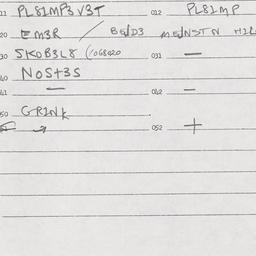 11 PL81MP3V3T 012 PL81MP
20 EM3R / BE/D3 ME/NSTN HIL
30 SK0B3L8 (1068020 031 —
40 NoSt3S
41 — 042 —
50 GRINK
052 +